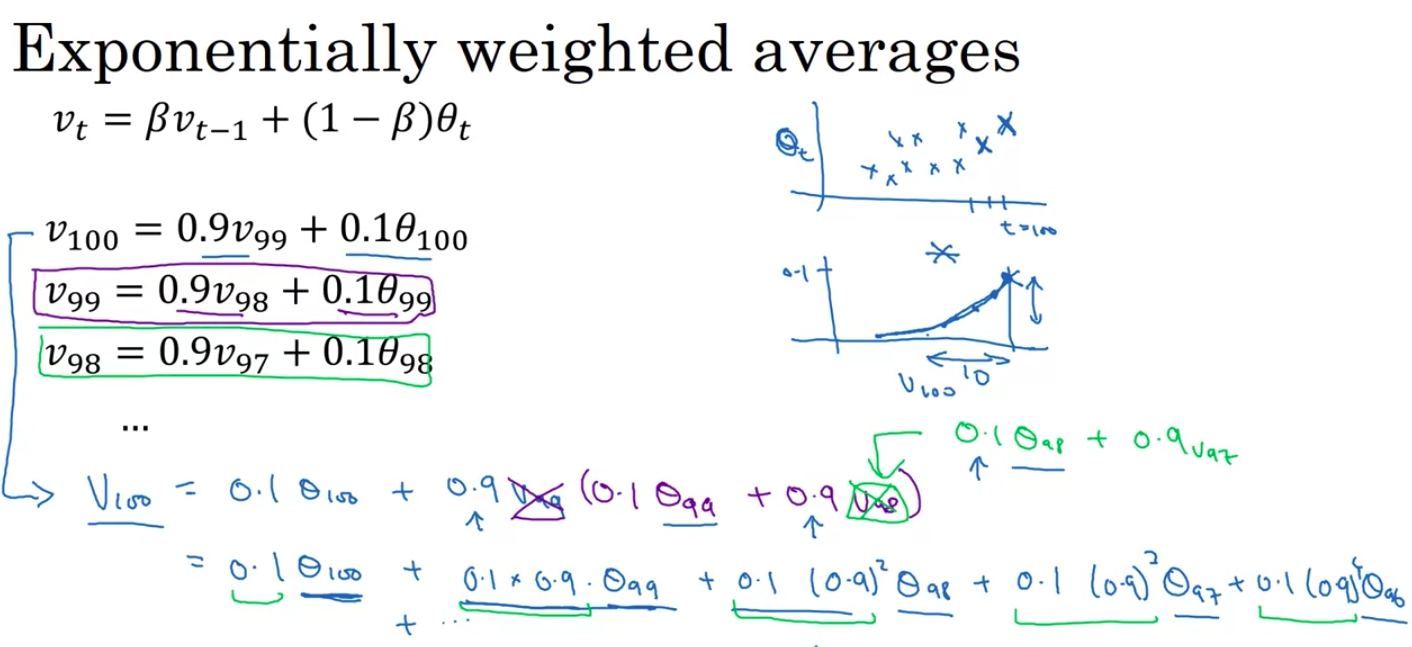 Exponentially weighted averages
v_t = βv_{t−1} + (1 − β)θ_t
θ_t
t=100
v_100 = 0.9v_99 + 0.1θ_100
v_99 = 0.9v_98 + 0.1θ_99
v_98 = 0.9v_97 + 0.1θ_98
...
0.1
10
V_100
0.1 θ_98 + 0.9 v_97
V_100 = 0.1 θ_100 + 0.9 v_99 (0.1 θ_99 + 0.9 v_98)
= 0.1 θ_100 + 0.1 × 0.9 · θ_99 + 0.1 (0.9)² θ_98 + 0.1 (0.9)³ θ_97 + 0.1 (0.9)⁴ θ_96
+ ...